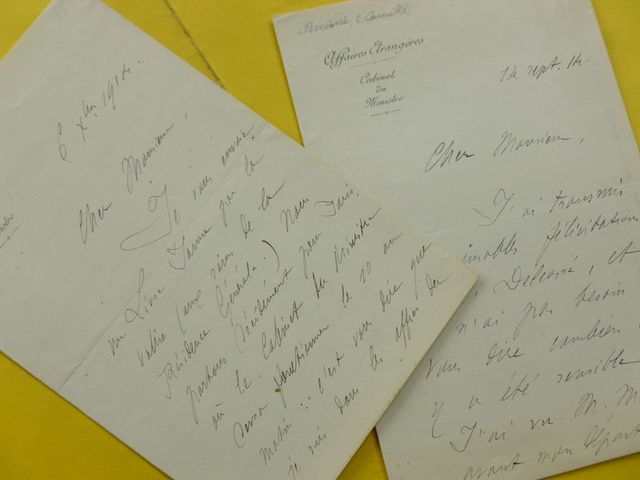 6 Xbre 1914.
Cher Monsieur,
Je vous envoie
un Livre Jaune par la
valise (aux soins de la
Résidence Générale.) Nous
partons décidément pour Paris.
où le Cabinet du Ministre
sera le 10 au
matin : c'est vous dire que
je suis dans les affres du
Affaires Etrangères
Cabinet
du
Ministre
14 sept. 14.
Cher Monsieur,
J'ai transmis
aimables félicitations
Delcassé, et
n'ai pas besoin
vous dire combien
il a été sensible
J'ai vu M. M
avant mon départ